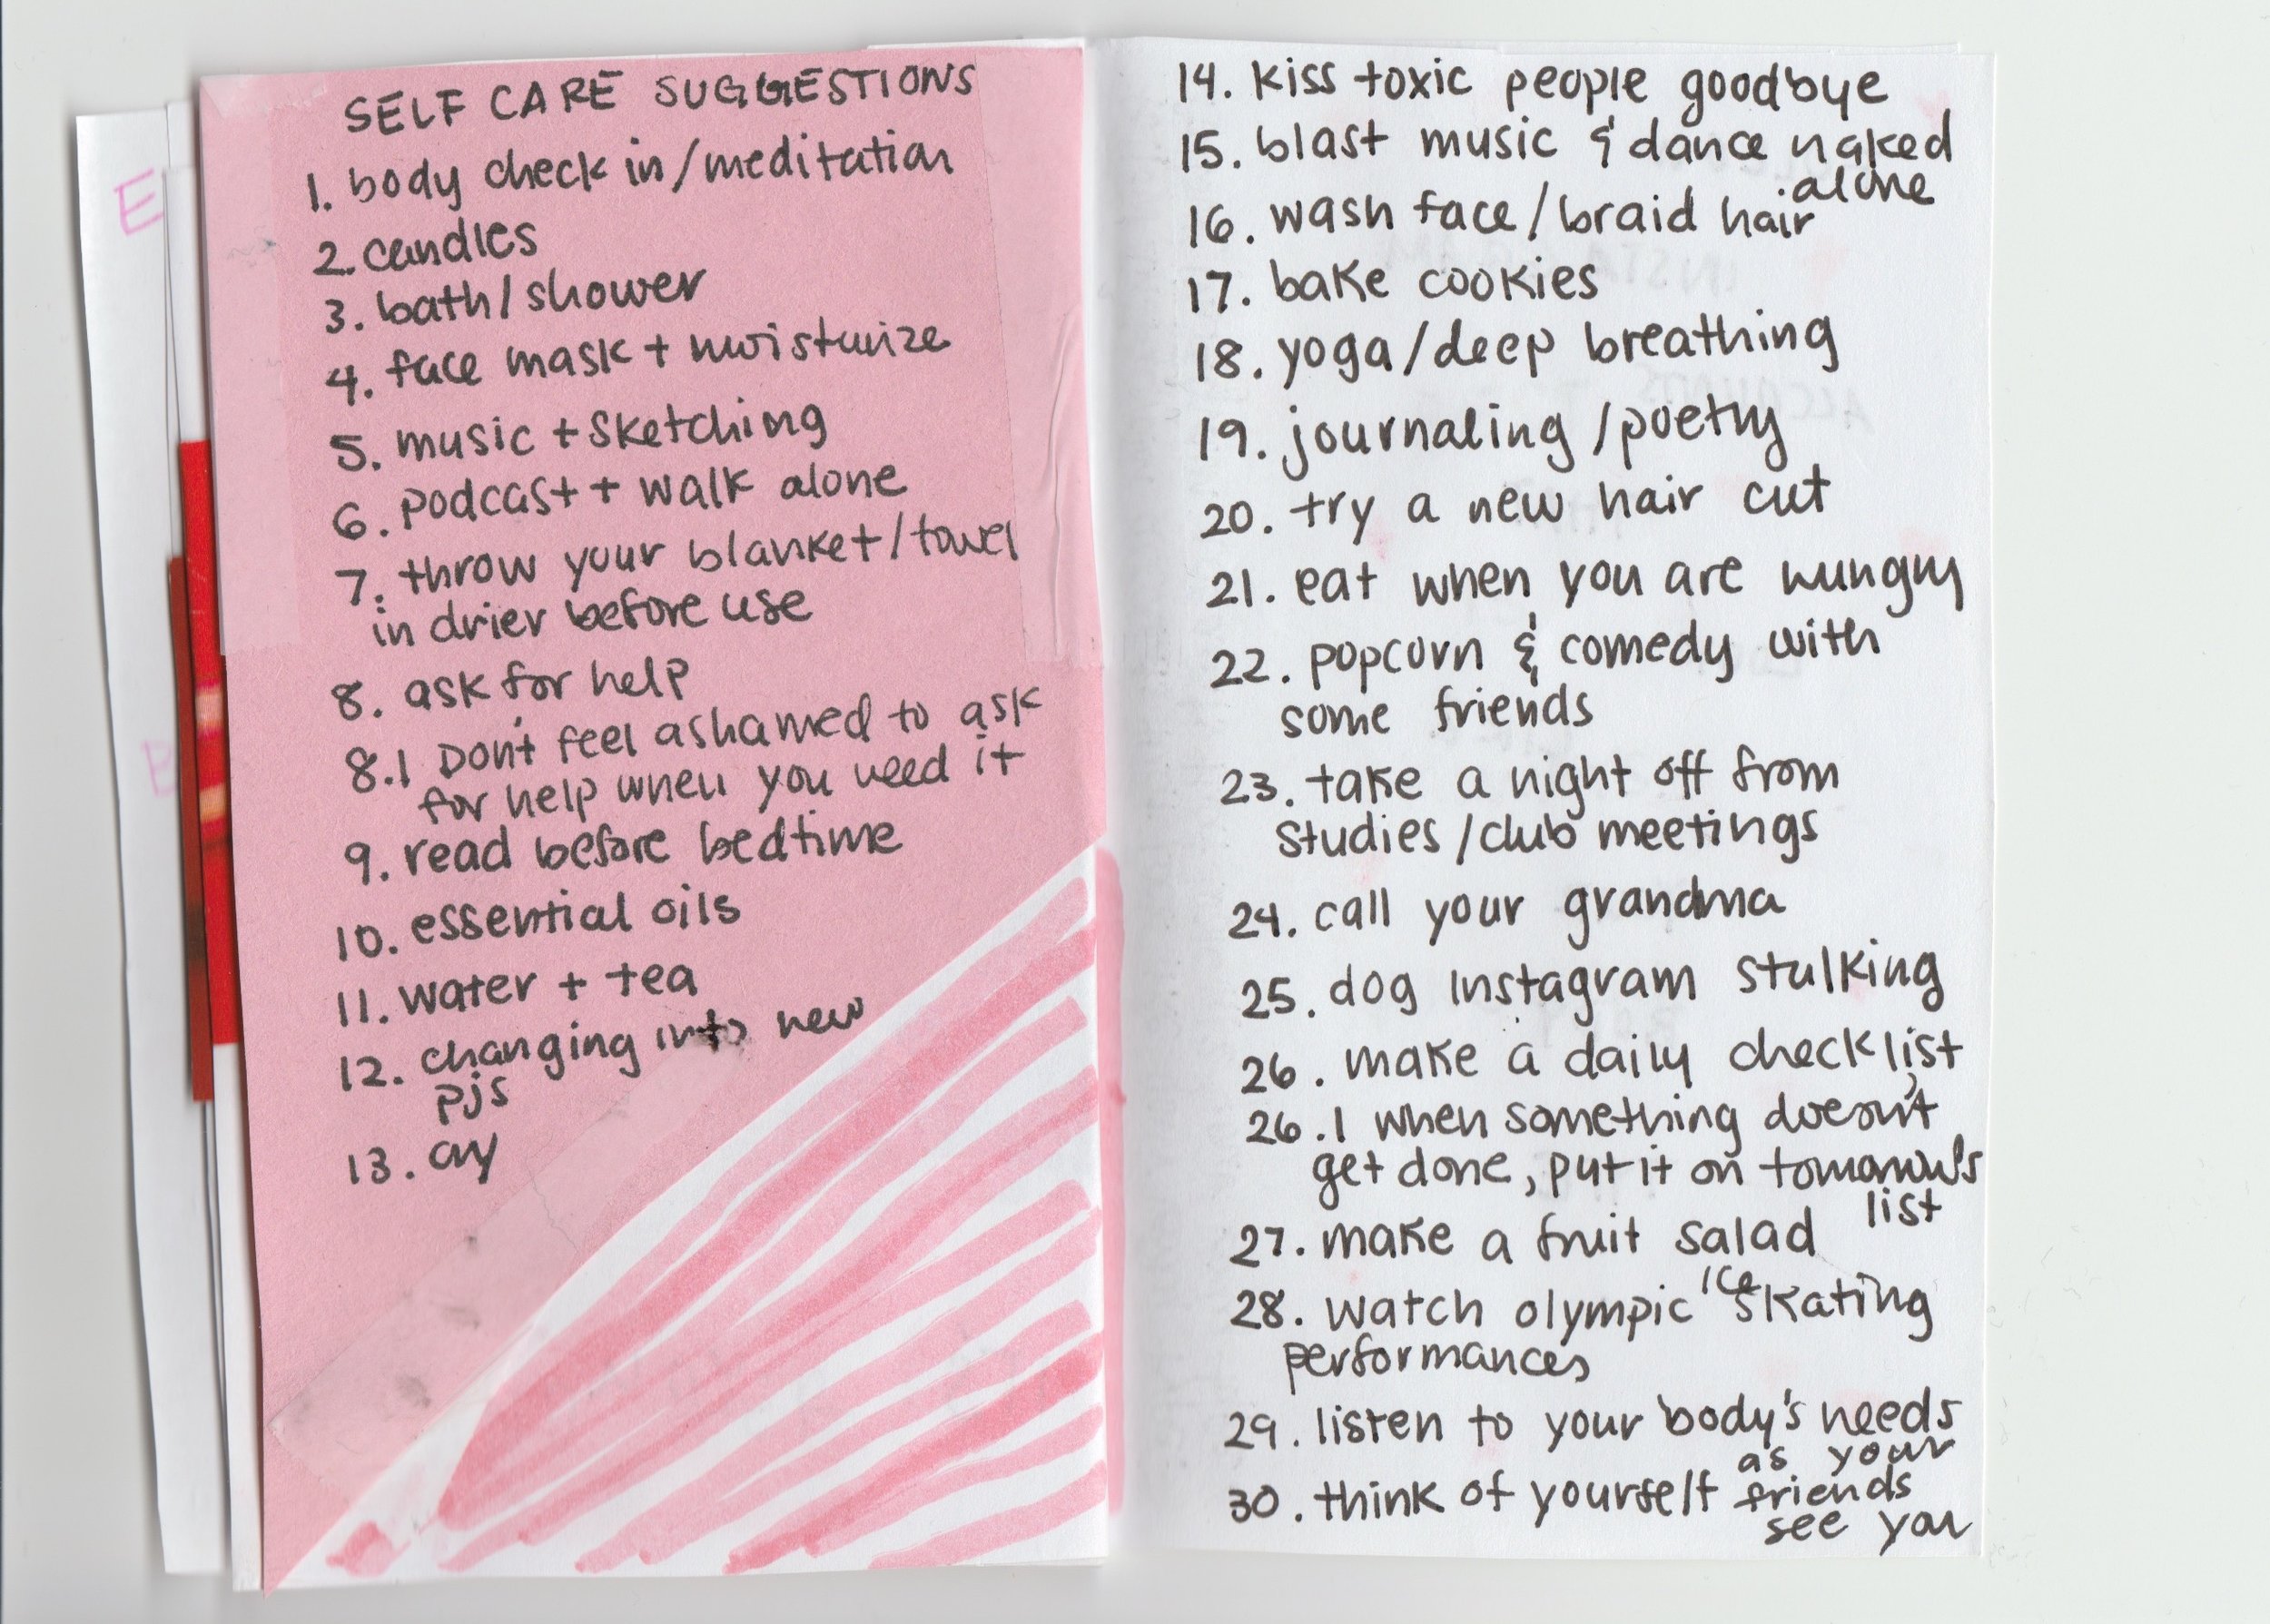 SELF CARE SUGGESTIONS
1. body check in/meditation
2. candles
3. bath/shower
4. face mask + moisturize
5. music + sketching
6. podcast + walk alone
7. throw your blanket/towel
in drier before use
8. ask for help
8.1 Don't feel ashamed to ask
for help when you need it
9. read before bedtime
10. essential oils
11. water + tea
12. changing into new
pjs
13. cry
14. kiss toxic people goodbye
15. blast music & dance naked
alone
16. wash face/braid hair
17. bake cookies
18. yoga/deep breathing
19. journaling/poetry
20. try a new hair cut
21. eat when you are hungry
22. popcorn & comedy with
some friends
23. take a night off from
studies/club meetings
24. call your grandma
25. dog instagram stalking
26. make a daily checklist
26.1 when something doesn't
get done, put it on tomorrow's
list
27. make a fruit salad
28. watch olympic ice skating
performances
29. listen to your body's needs
30. think of yourself as your
friends
see you
E
B